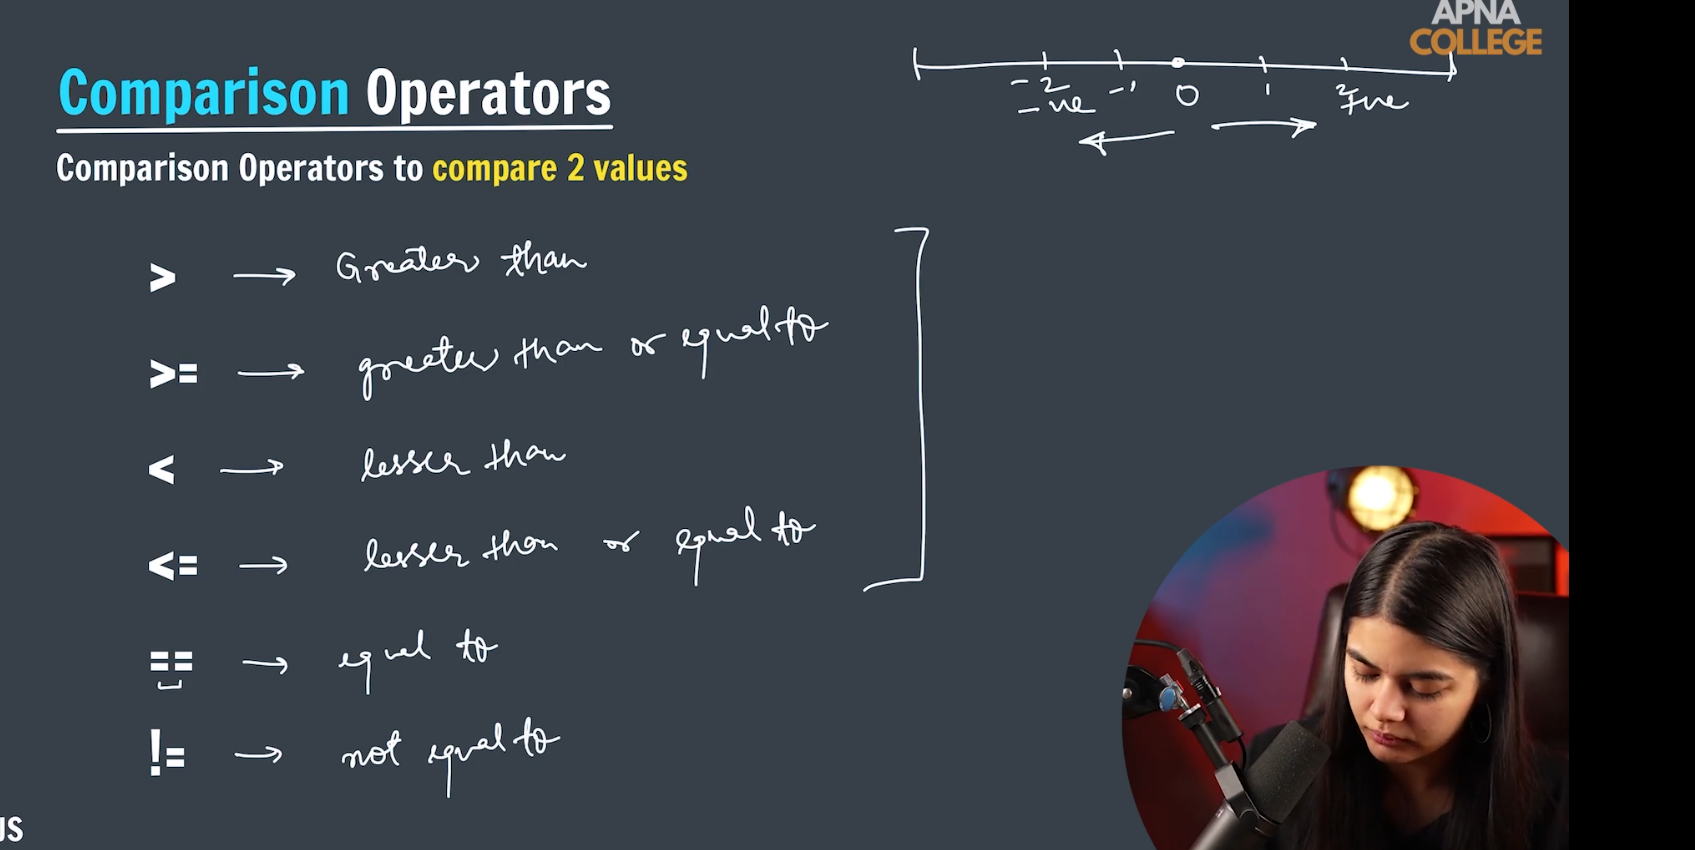 APNA
COLLEGE
Comparison Operators
-2 -1 0 1 2
-ve +ve
Comparison Operators to compare 2 values
> → Greater than
>= → greater than or equal to
< → lesser than
<= → lesser than or equal to
== → equal to
!= → not equal to
JS